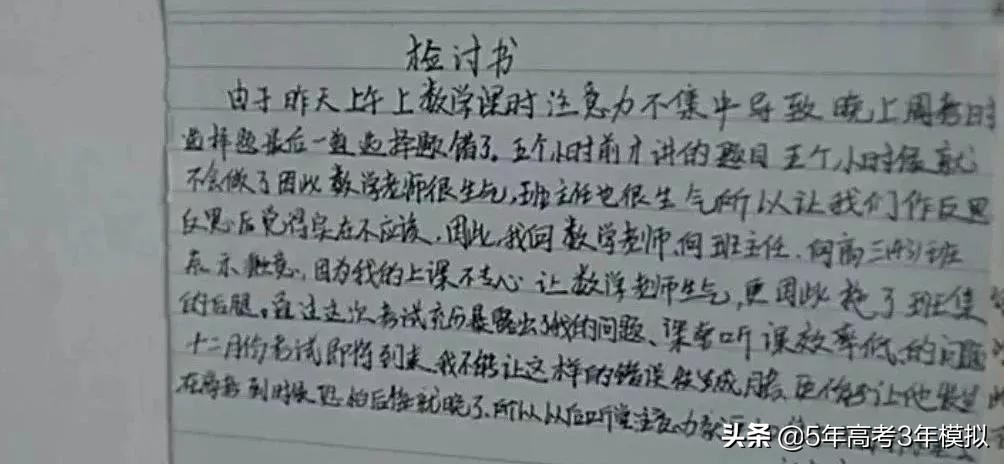 检讨书
由于昨天上午上数学课时注意力不集中导致晚上周考时
选择题最后一道选择题错了。五个小时前才讲的题目五个小时后就
不会做了因此数学老师很生气,班主任也很生气所以让我们作反思
反思后觉得实在不应该.因此,我向数学老师、向班主任.向高三班
表示歉意.因为我的上课不专心让数学老师生气,更因此拖了班集
的后腿。通过这次考试充分暴露出了我的问题、课堂听课效率低的问题
十二月份考试即将到来.我不能让这样的错误发生成 更 让他发生
在高考到时候恐怕后悔就晚了.所以从以后听课注意力
头条 @5年高考3年模拟